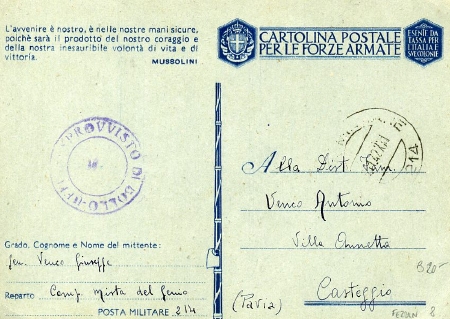 L'avvenire è nostro, è nelle nostre mani sicure,
poichè sarà il prodotto del nostro coraggio e
della nostra inesauribile volontà di vita e di
vittoria.
MUSSOLINI
CARTOLINA POSTALE
PER LE FORZE ARMATE
ESENTE DA
TASSA PER
L'ITALIA E
SVE COLONIE
SPROVVISTO DI BOLLO
214
Alla Dist.
Venco Antonio
Villa Annetta
Casteggio
(Pavia)
Grado, Cognome e Nome del mittente:
Gen. Venco Giuseppe
Reparto Comp. Mista del Genio
POSTA MILITARE 214
FEZZAN